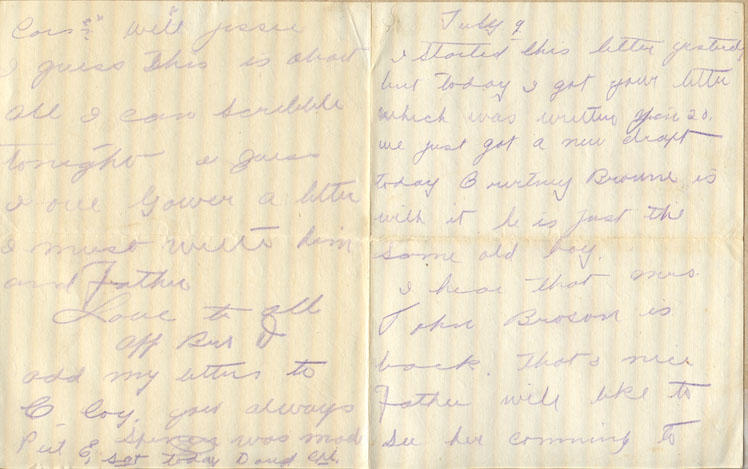 well Jessie
I guess this is about
all I can scribble
tonight I guess
I owe Gower a letter
I must write him
and Father
Love to all
Aff Bro
add my letters to
C Coy, you always
Put E, was made
Sgt today D and
July 9
I started this letter yesterday
but today I got your letter
which was written June 20.
we just got a new draft
today Courtney Browne is
with it he is just the
same old boy.
I hear that mrs
John is
back. That's nice
Father will like to
see her comming to